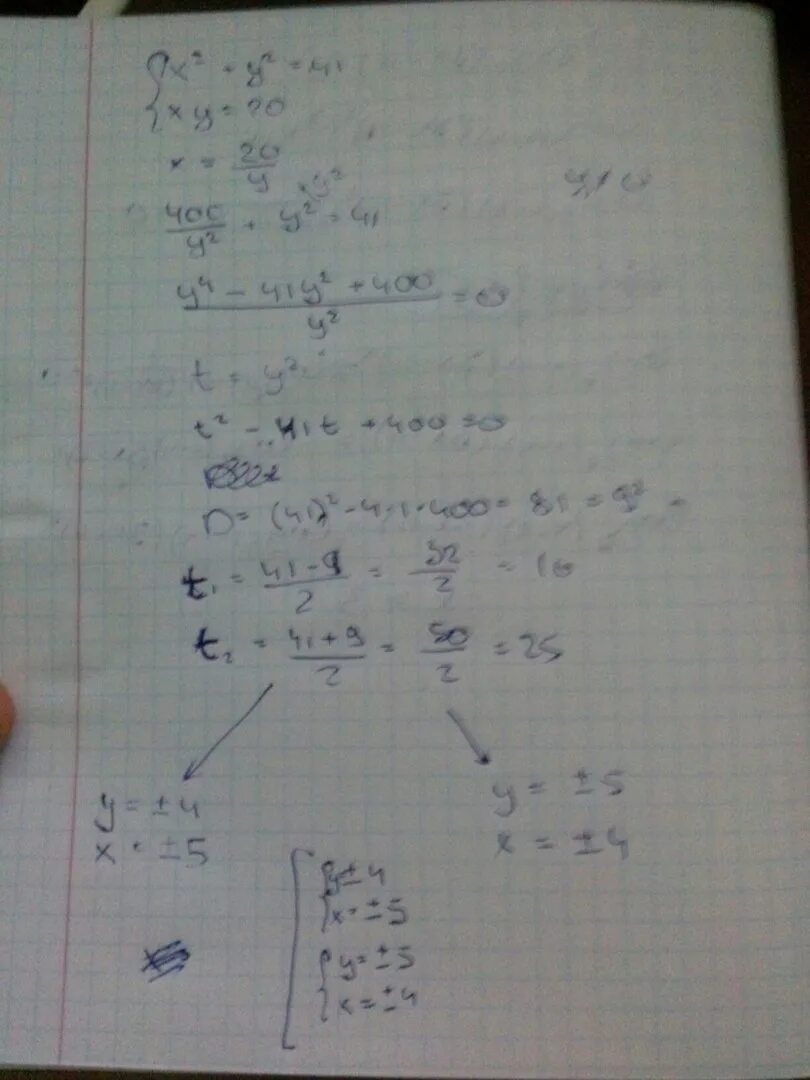 {x² + y² = 41
{xy = 20
x = 20/y
y ≠ 0
400/y² + y² = 41
(y⁴ - 41y² + 400)/y² = 0
t = y²
t² - 41t + 400 = 0
D = (41)² - 4·1·400 = 81 = 9²
t₁ = (41-9)/2 = 32/2 = 16
t₂ = (41+9)/2 = 50/2 = 25
y = ±4
x = ±5
y = ±5
x = ±4
[{y ± 4
{x = ±5
{y = ±5
{x = ±4